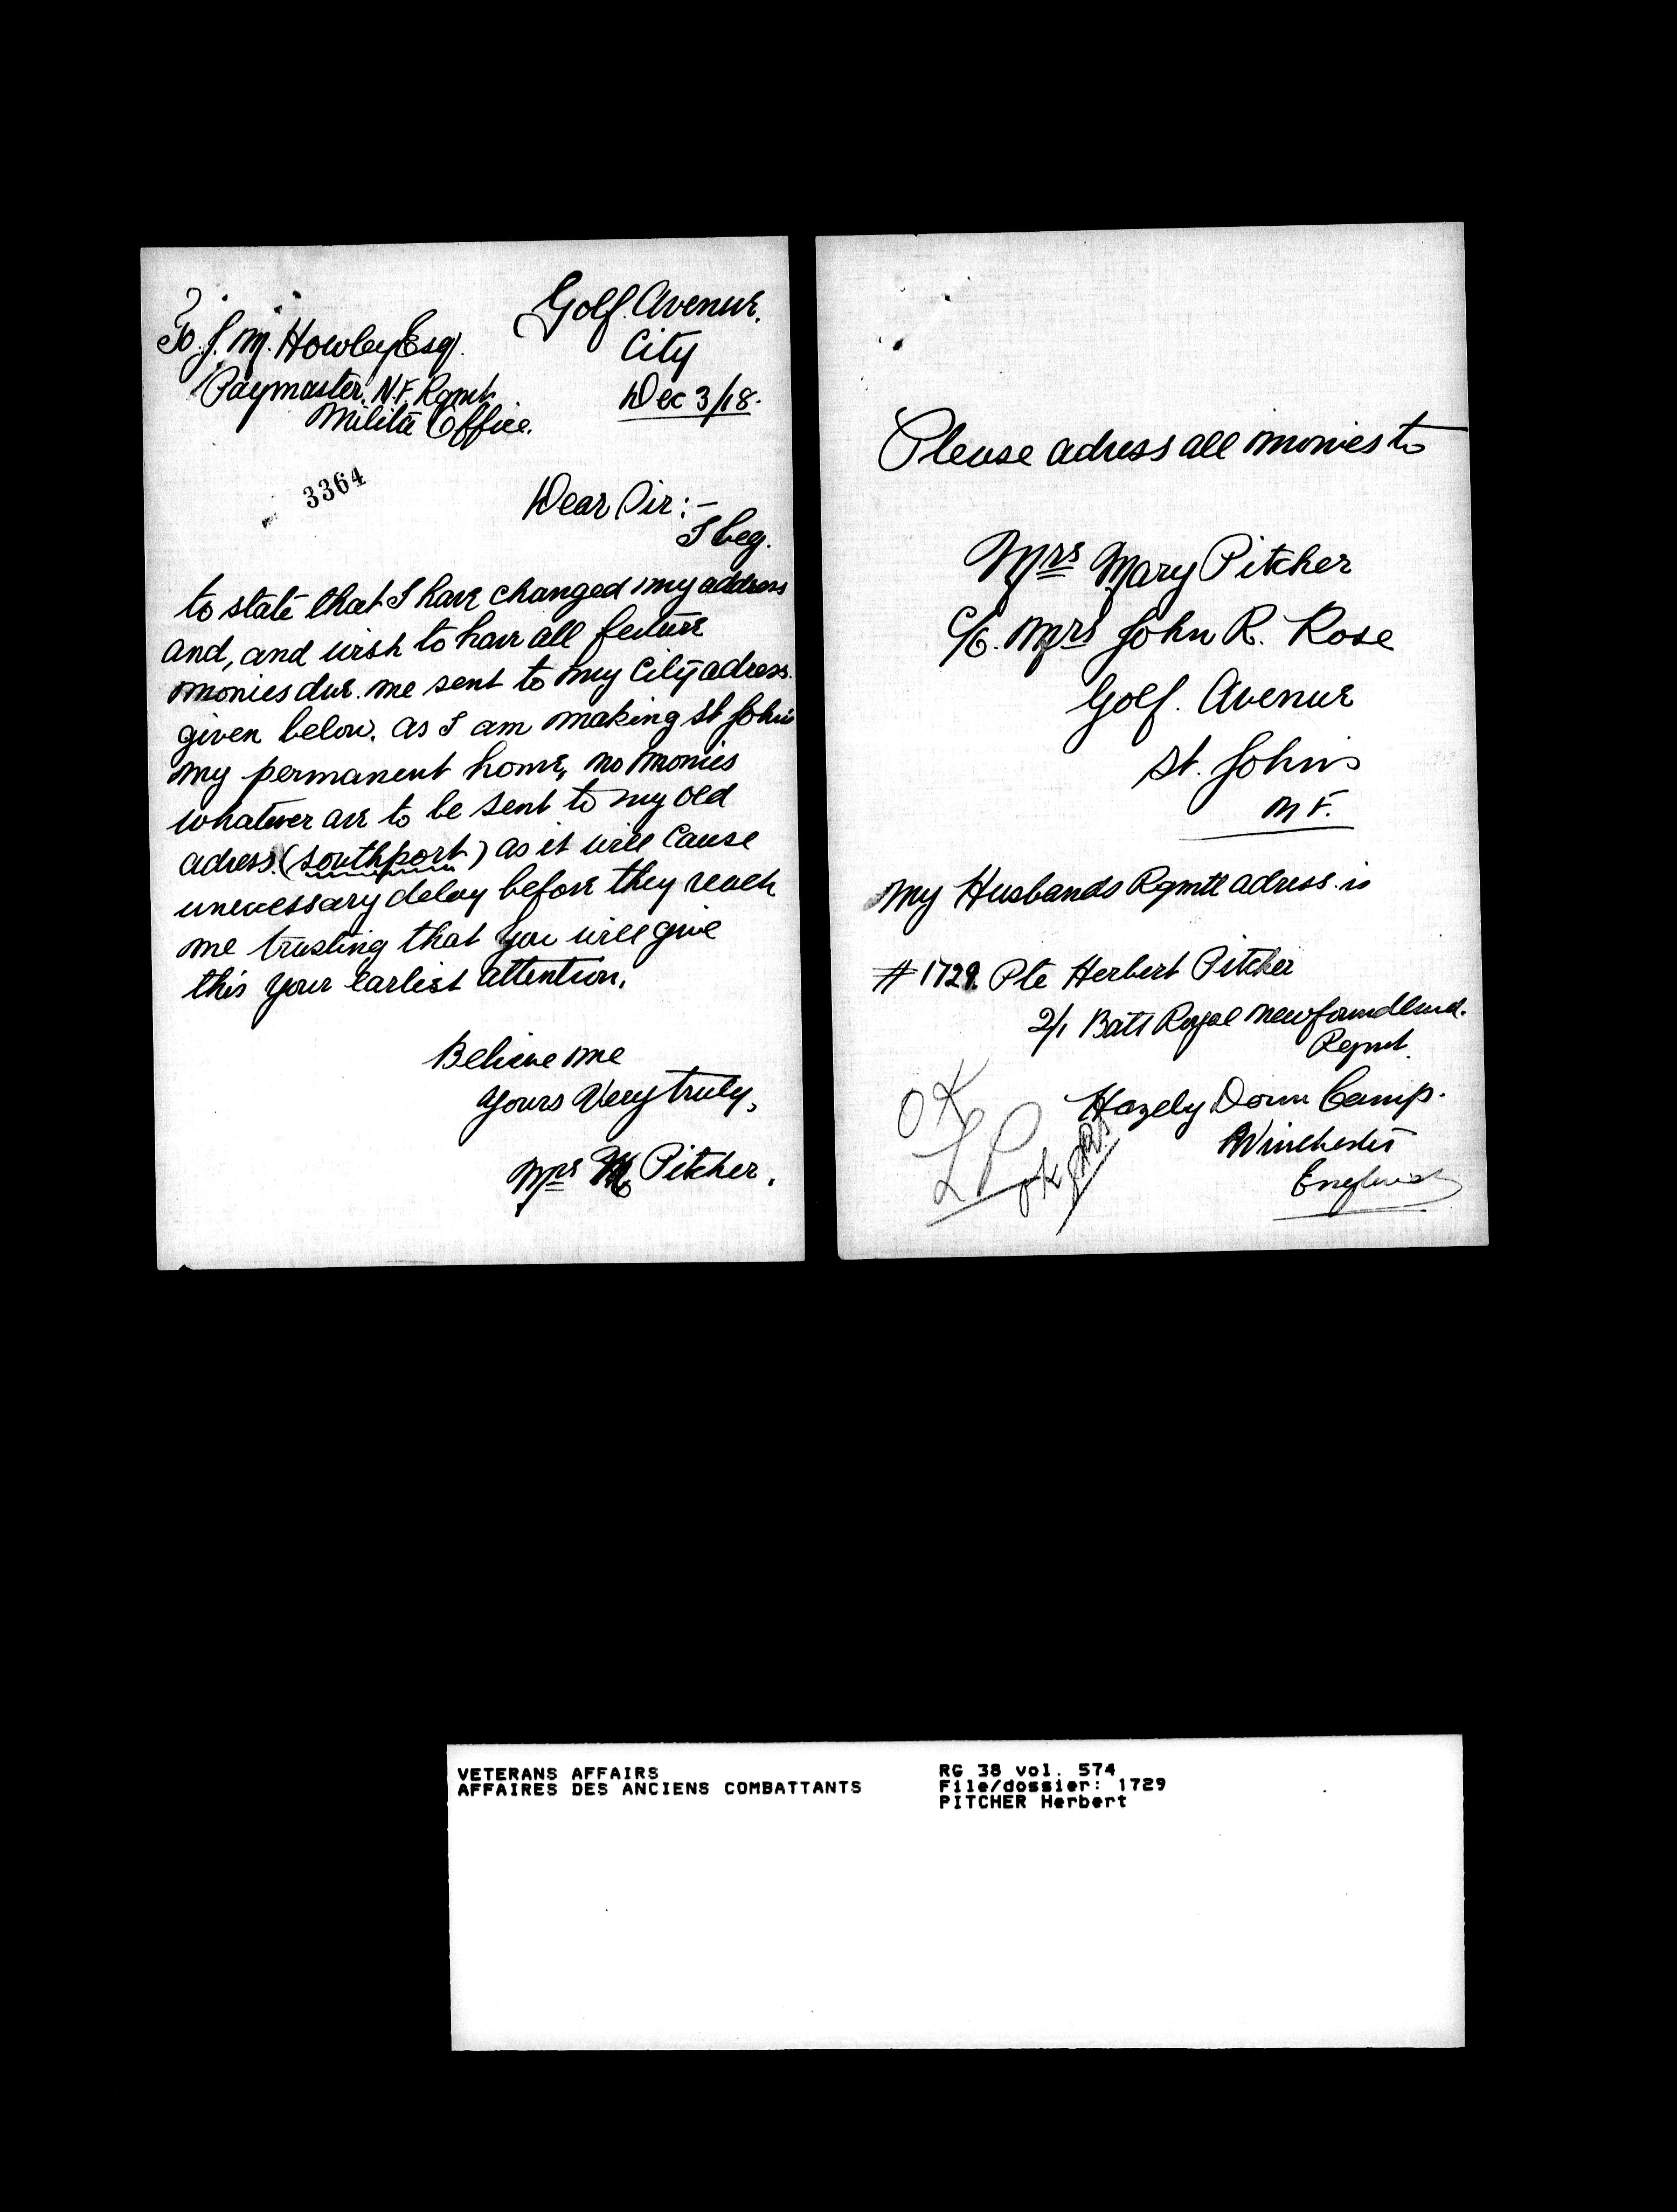 Golf. Avenue.
City
Dec 3/18.
To. J. M. Howley Esq.
Paymaster. N.F. Rgmt.
Milita Office.
3364
Dear Sir:-
I beg.
to state that I have changed my address
and, and wish to have all future
monies due. me sent to my City adress.
given below. as I am making St Johns
my permanent home, no monies
whatever are to be sent to my old
adress. (Southport) as it will cause
unecessary delay before they reach
me trusting that you will give
this your earlist attention.
Believe me
Yours Very truly,
Mrs M Pitcher.
Please adress all monies to
Mrs Mary Pitcher
C/o. Mrs John R. Rose
Golf. Avenue
St. John's
N F.
My Husbands Rgmtl adress. is
# 1729. Pte Herbert Pitcher
2/1 Batt Royal Newfoundland.
Regmt.
Hazely Down Camp.
Winchester
England
OK
VETERANS AFFAIRS
AFFAIRES DES ANCIENS COMBATTANTS
RG 38 vol. 574
File/dossier: 1729
PITCHER Herbert